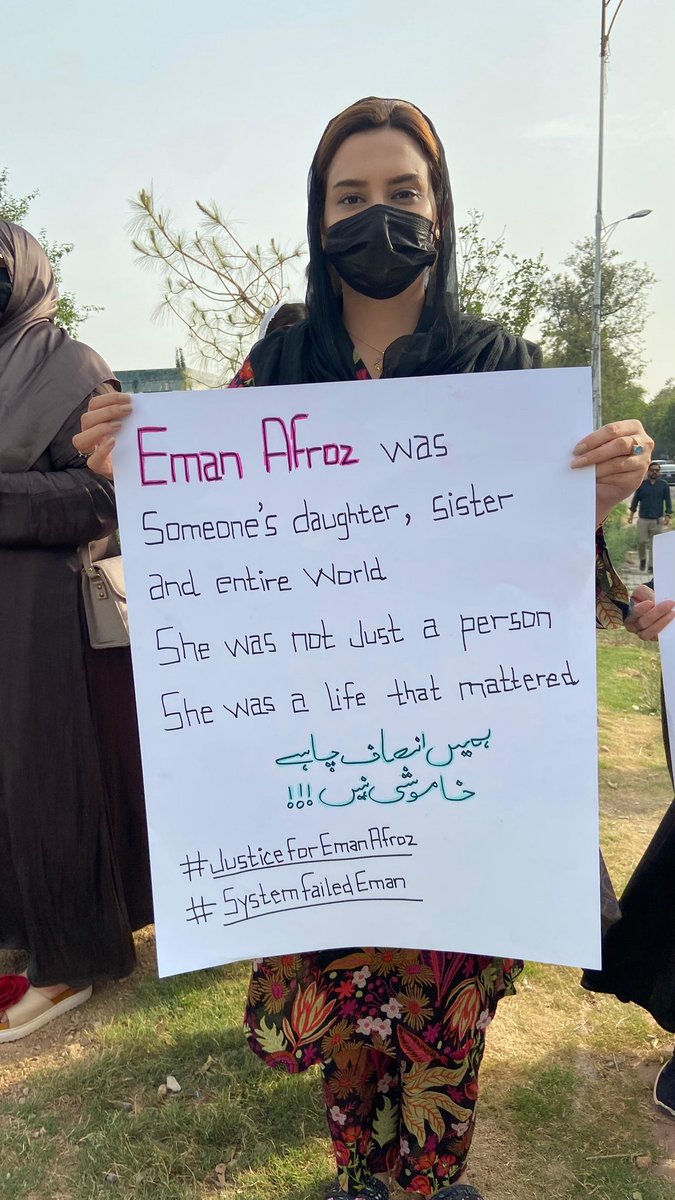 Eman Afroz was
Someone's daughter, sister
and entire World
She was not Just a person
She was a life that mattered
ہمیں انصاف چاہیے
خاموشی نہیں !!!
#JusticeforEmanAfroz
#SystemfailedEman